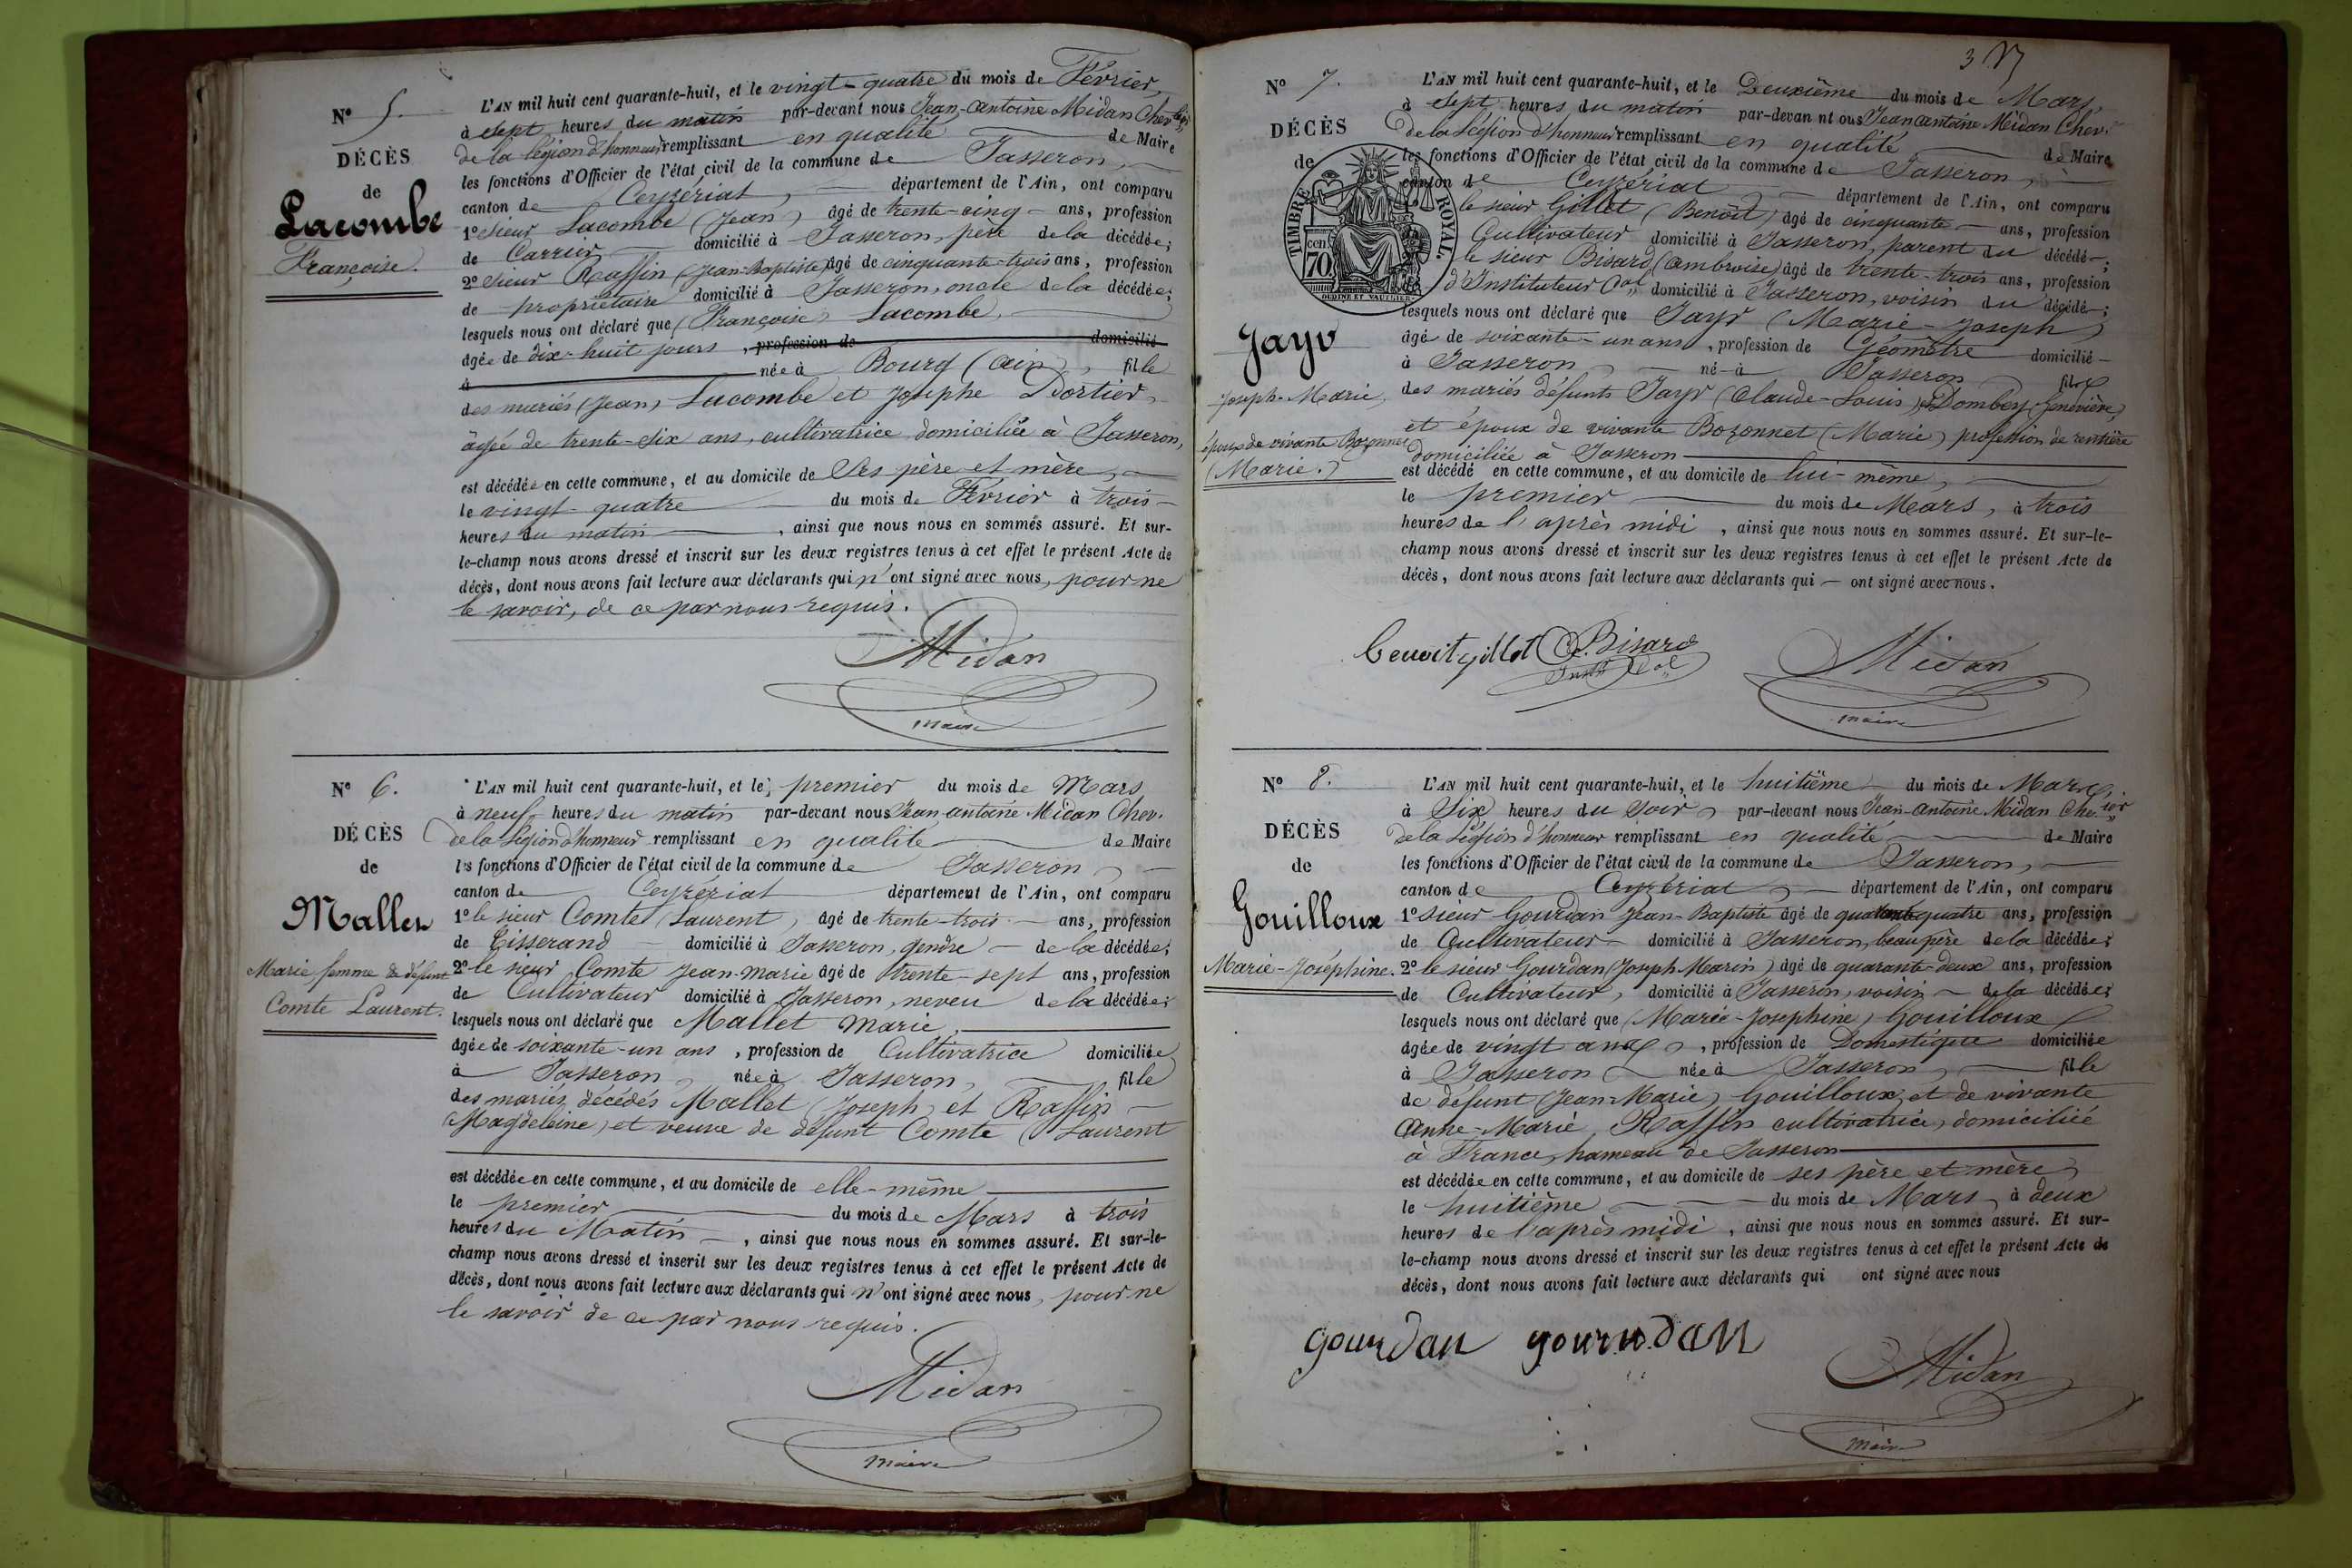 N° 5.
DÉCÈS
de
Lacombe
Françoise.
L'AN mil huit cent quarante-huit, et le vingt-quatre du mois de Février,
à sept heures du matin par-devant nous Jean-Antoine Midan Chev.
de la légion d'honneur remplissant en qualité de Maire
les fonctions d'Officier de l'état civil de la commune de Jasseron,
canton de Ceyzériat, département de l'Ain, ont comparu
1° sieur Lacombe (Jean) âgé de trente-cinq ans, profession
de Carrier domicilié à Jasseron, père de la décédée;
2° sieur Raffin (Jean-Baptiste) âgé de cinquante-trois ans, profession
de propriétaire domicilié à Jasseron, oncle de la décédée;
lesquels nous ont déclaré que (Françoise) Lacombe,
âgée de dix-huit jours, profession de domicilié
à née à Bourg (Ain), fille
des mariés (Jean) Lacombe et Josephe Dortier,
âgée de trente-six ans, cultivatrice domiciliée à Jasseron,
est décédée en cette commune, et au domicile de Ses père et mère,
le vingt-quatre du mois de Février à trois
heures du matin, ainsi que nous nous en sommes assuré. Et sur-
le-champ nous avons dressé et inscrit sur les deux registres tenus à cet effet le présent Acte de
décès, dont nous avons fait lecture aux déclarants qui n'ont signé avec nous, pour ne
le savoir, de ce par nous requis.
Midan
maire
N° 6.
DÉCÈS
de
Mallet
Marie femme de défunt
Comte Laurent.
L'AN mil huit cent quarante-huit, et le premier du mois de Mars
à neuf heures du matin par-devant nous Jean-antoine Midan Chev.
de la Légion d'honneur remplissant en qualité de Maire
les fonctions d'Officier de l'état civil de la commune de Jasseron,
canton de Ceyzériat département de l'Ain, ont comparu
1° le sieur Comte (Laurent) âgé de trente-trois ans, profession
de Tisserand domicilié à Jasseron, gendre de la décédée;
2° le sieur Comte Jean-marie âgé de trente-sept ans, profession
de Cultivateur domicilié à Jasseron, neveu de la décédée;
lesquels nous ont déclaré que Mallet Marie,
âgée de soixante-un ans, profession de Cultivatrice domiciliée
à Jasseron, née à Jasseron, fille
des mariés décédés Mallet (Joseph) et Raffin
(Magdeleine) et veuve de défunt Comte (Laurent
est décédée en cette commune, et au domicile de elle-même
le premier du mois de Mars à trois
heures du Matin, ainsi que nous nous en sommes assuré. Et sur-le-
champ nous avons dressé et inscrit sur les deux registres tenus à cet effet le présent Acte de
décès, dont nous avons fait lecture aux déclarants qui n'ont signé avec nous, pour ne
le savoir de ce par nous requis.
Midan
maire
N° 7.
DÉCÈS
de
TIMBRE ROYAL
cen
70
Jayr
Joseph-Marie,
époux de vivante Bozonnet
(Marie.)
L'AN mil huit cent quarante-huit, et le Deuxième du mois de Mars,
à sept heures du matin par-devan nt ous Jean antoine Midan Chev.
de la Légion d'honneur remplissant en qualité de Maire
les fonctions d'Officier de l'état civil de la commune de Jasseron,
canton de Ceyzériat département de l'Ain, ont comparu
le sieur Gillet (Benoît) âgé de cinquante ans, profession
Cultivateur domicilié à Jasseron, parent du décédé;
le sieur Bisard (ambroise) âgé de trente-trois ans, profession
d'Instituteur Cal domicilié à Jasseron, voisin du décédé;
lesquels nous ont déclaré que Jayr (Marie-Joseph)
âgé de soixante-un ans, profession de Géomètre domicilié
à Jasseron, né à Jasseron fils
des mariés défunts Jayr (Claude-Louis) et Dombey Genevière,
et époux de vivante Bozonnet (Marie) profession de rentière
domiciliée à Jasseron
est décédé en cette commune, et au domicile de lui-même,
le premier du mois de Mars, à trois
heures de l'après midi, ainsi que nous nous en sommes assuré. Et sur-le-
champ nous avons dressé et inscrit sur les deux registres tenus à cet effet le présent Acte de
décès, dont nous avons fait lecture aux déclarants qui ont signé avec nous.
benoit gillet Bisard Midan
maire
N° 8.
DÉCÈS
de
Gouilloux
Marie-Joséphine.
L'AN mil huit cent quarante-huit, et le huitième du mois de Mars
à Six heures du soir, par-devant nous Jean-antoine Midan Chevier
de la Légion d'honneur remplissant en qualité de Maire
les fonctions d'Officier de l'état civil de la commune de Jasseron,
canton de Ceyzériat, département de l'Ain, ont comparu
1° sieur Gourdan Jean-Baptiste âgé de quarante quatre ans, profession
de Cultivateur domicilié à Jasseron, beau père de la décédée;
2° le sieur Gourdan (Joseph Marin) âgé de quarante-deux ans, profession
de Cultivateur, domicilié à Jasseron, voisin de la décédée;
lesquels nous ont déclaré que (Marie-Josephine) Gouilloux
âgée de vingt ans, profession de Domestique domiciliée
à Jasseron née à Jasseron, fille
de défunt (Jean-Marie) Gouilloux, et de vivante
Anne-Marie Raffin cultivatrice, domiciliée
à France, hameau de Jasseron
est décédée en cette commune, et au domicile de ses père et mère,
le huitième du mois de Mars, à deux
heures de l'après midi, ainsi que nous nous en sommes assuré. Et sur-
le-champ nous avons dressé et inscrit sur les deux registres tenus à cet effet le présent Acte de
décès, dont nous avons fait lecture aux déclarants qui ont signé avec nous
gourdan gourdan Midan
maire